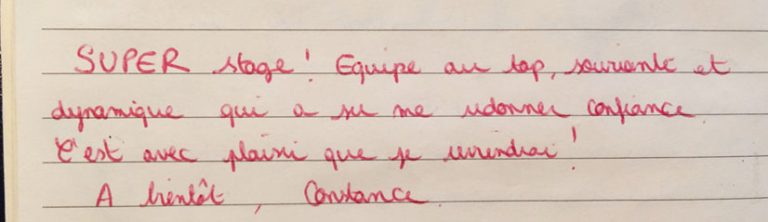 SUPER stage ! Equipe au top, souriante et
dynamique qui a su me redonner confiance.
C'est avec plaisir que je reviendrai !
A bientôt, Constance